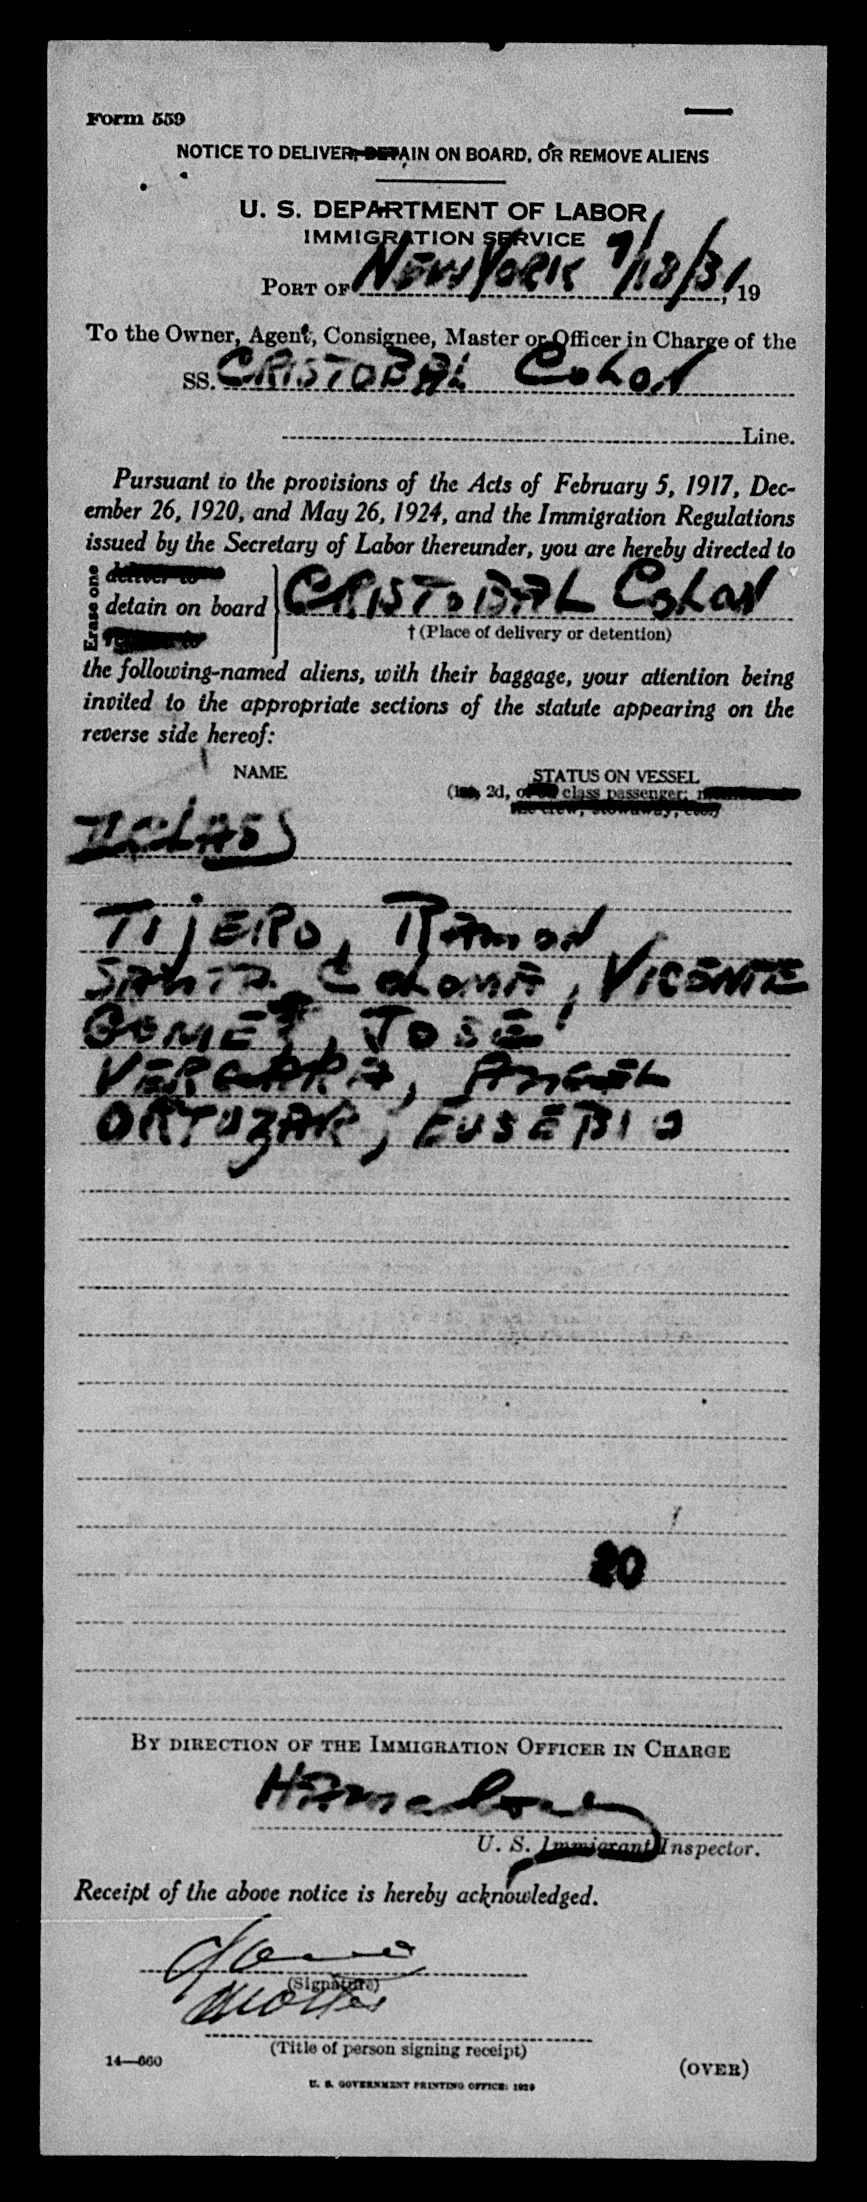 Form 559
NOTICE TO DELIVER, DETAIN ON BOARD, OR REMOVE ALIENS
U. S. DEPARTMENT OF LABOR
IMMIGRATION SERVICE
PORT OF NEW YORK 9/18/31, 19
To the Owner, Agent, Consignee, Master or Officer in Charge of the
SS. CRISTOBAL COLON
Line.
Pursuant to the provisions of the Acts of February 5, 1917, Dec-
ember 26, 1920, and May 26, 1924, and the Immigration Regulations
issued by the Secretary of Labor thereunder, you are hereby directed to
Erase one
deliver to
detain on board CRISTOBAL COLON
† (Place of delivery or detention)
the following-named aliens, with their baggage, your attention being
invited to the appropriate sections of the statute appearing on the
reverse side hereof:
NAME STATUS ON VESSEL
2d, class passenger;
the crew, stowaway, etc.)
TIJERO, RAMON
SANTA COLOMA, VICENTE
GOMEZ, JOSE
VERGARA, ANGEL
ORTUZAR, EUSEBIO
20
BY DIRECTION OF THE IMMIGRATION OFFICER IN CHARGE
U. S. Immigrant Inspector.
Receipt of the above notice is hereby acknowledged.
(Signature)
(Title of person signing receipt)
14—660
(OVER)
U. S. GOVERNMENT PRINTING OFFICE: 1929